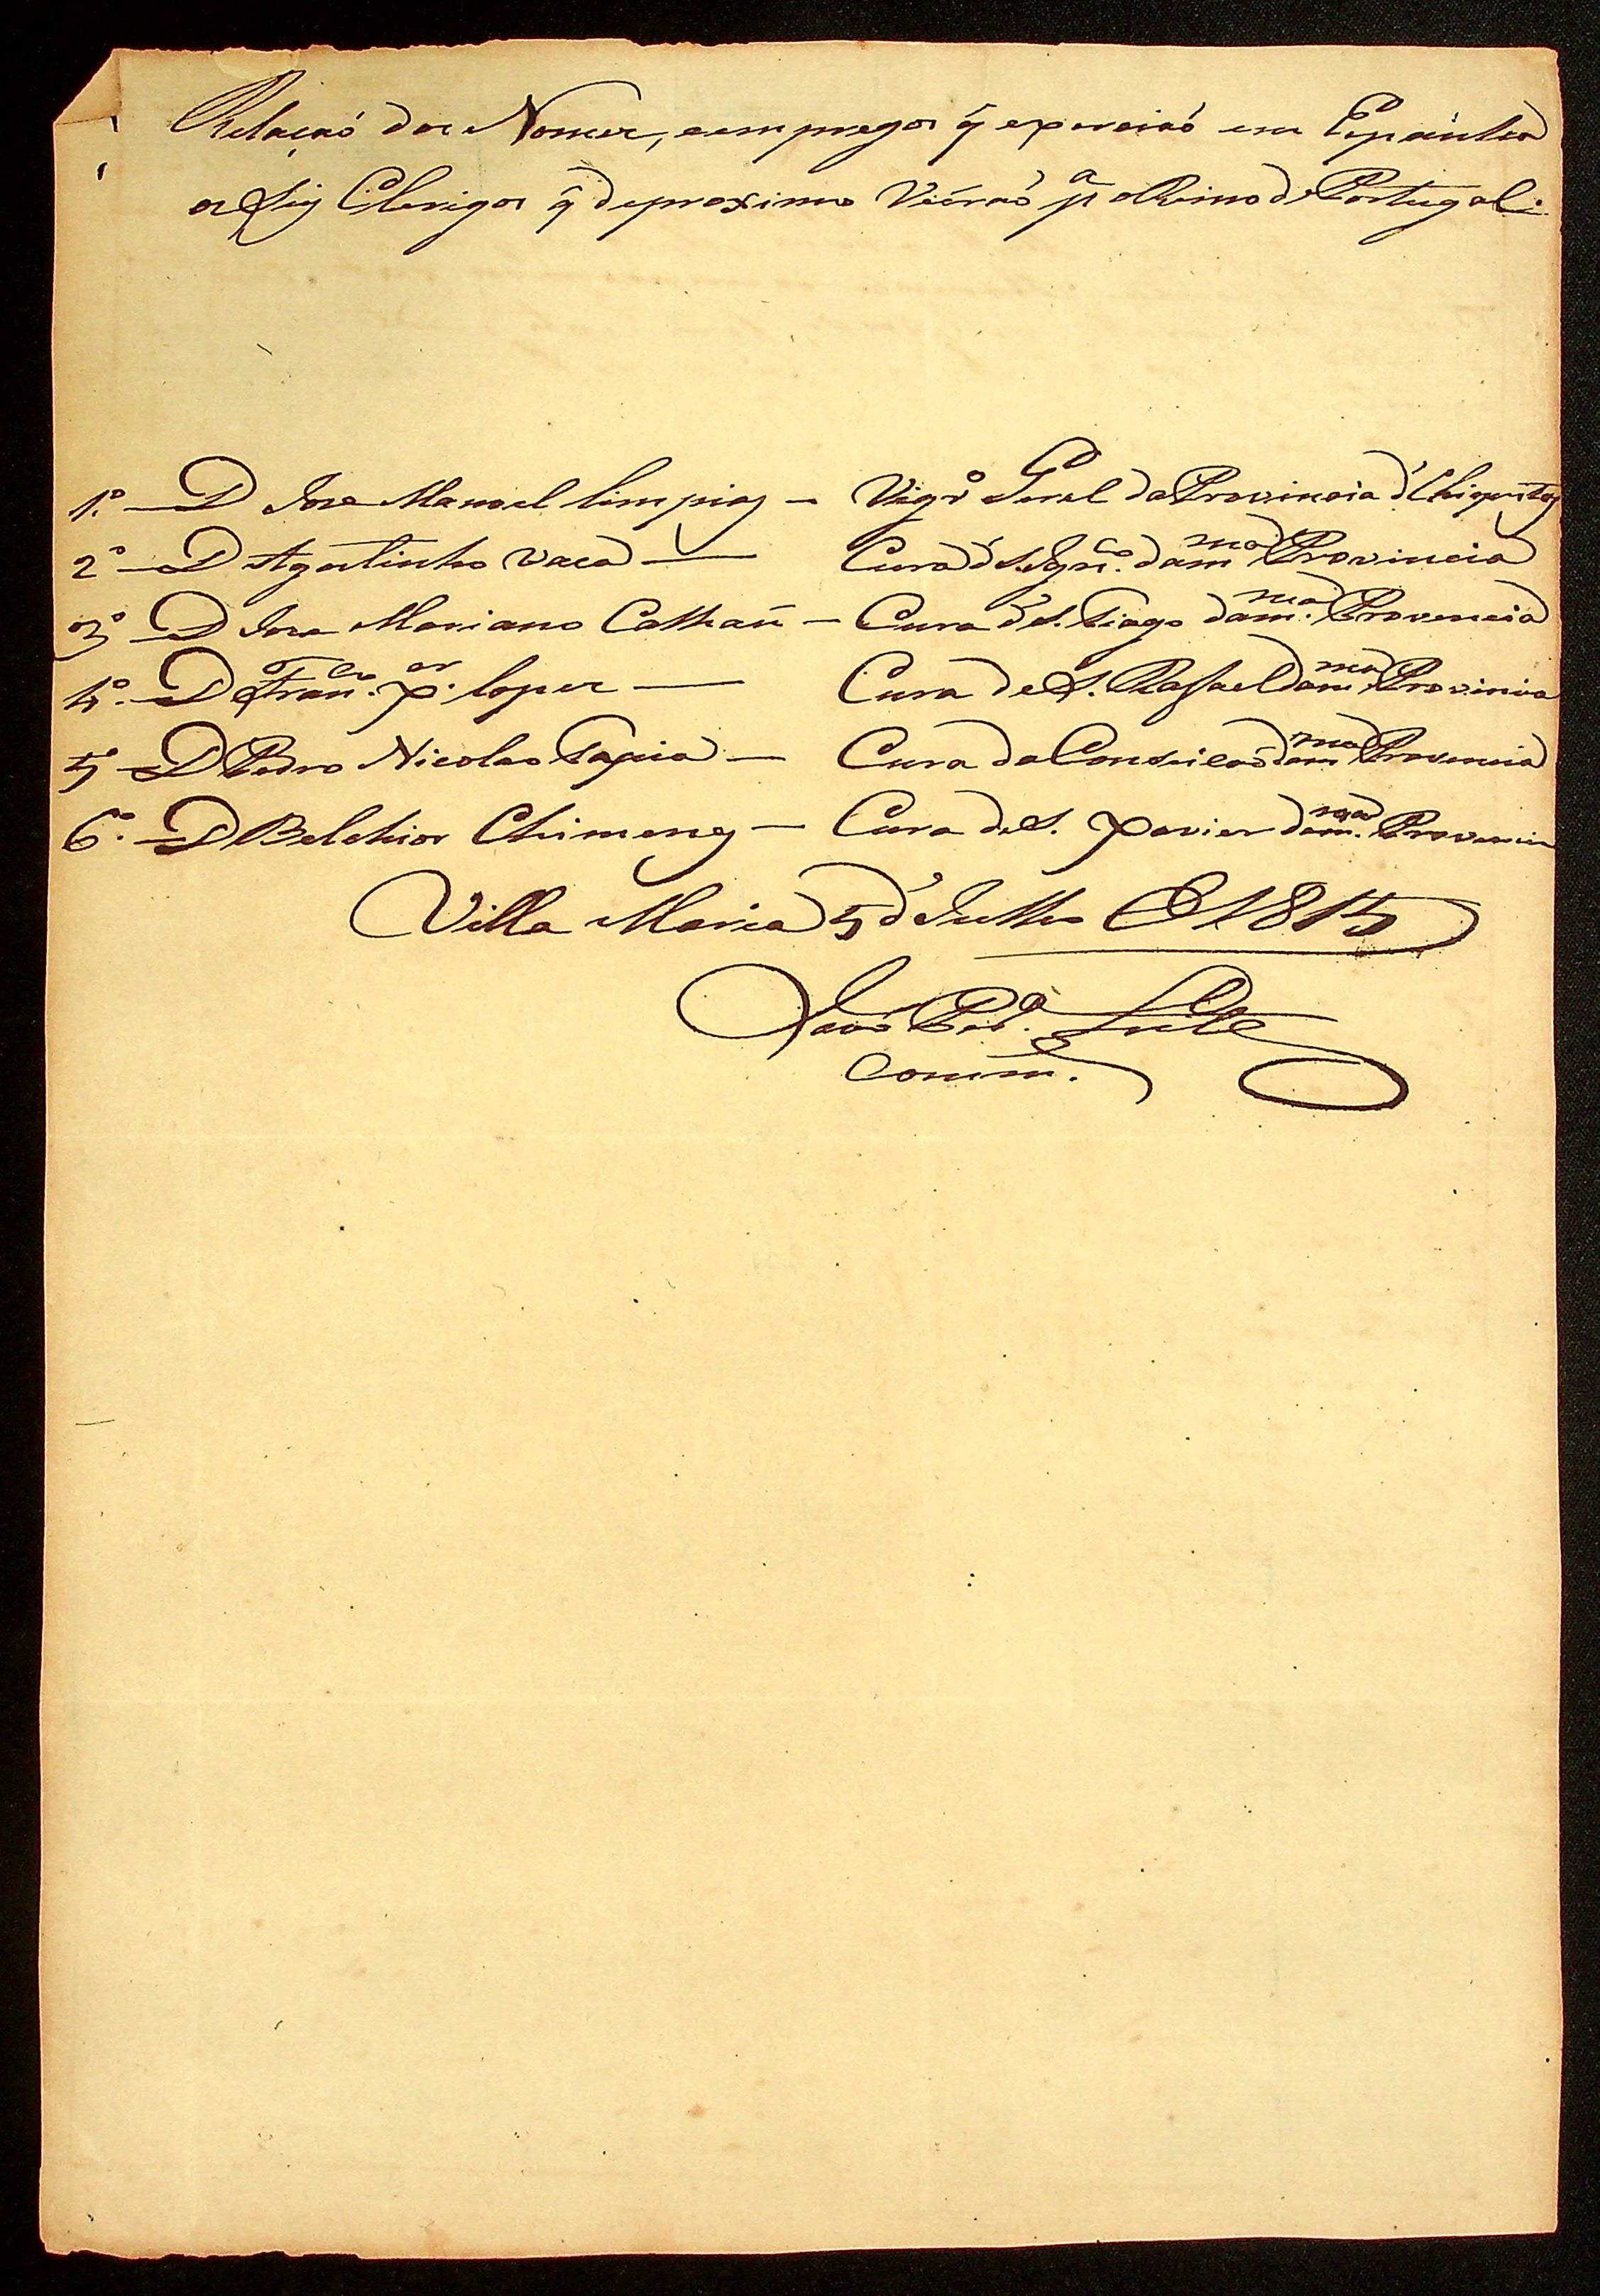 Relaçaó dos Nomes, eempregos q̃ exerciaó em Espânha
os Sig Clerigos q̃ deproximo Viérao pª oReino d'Portugal:
1.º — D Jose Manoel limpias — Vigrº Geral daProvincia d'Chiquitos
2º — D Agostinho Vaca — Cura d'S. Ignco. dam.ma Provincia
3º D Jose Mariano Cathañ — Cura d'S. Tiago dam.ma Provencia
4º. — D Fran.co X.er lopes — Cura deS. Raffael dam.ma Provincia
5º — D Pedro Nicolao Tapia — Cura daConseicaó dam.ma Provencia
6º. — D Belchior Chimenes — Cura deS. Xavier dam.ma Provencia
Villa Maria 5 d'Julho E 1815
Joaó P.º Leite
Comm.